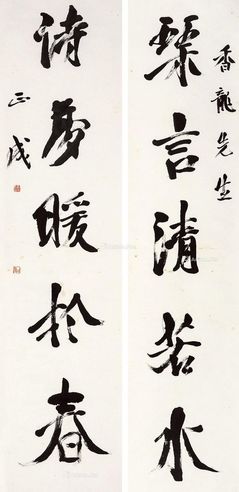 香龍先生
琹言清若水
詩夢暖於春
正成